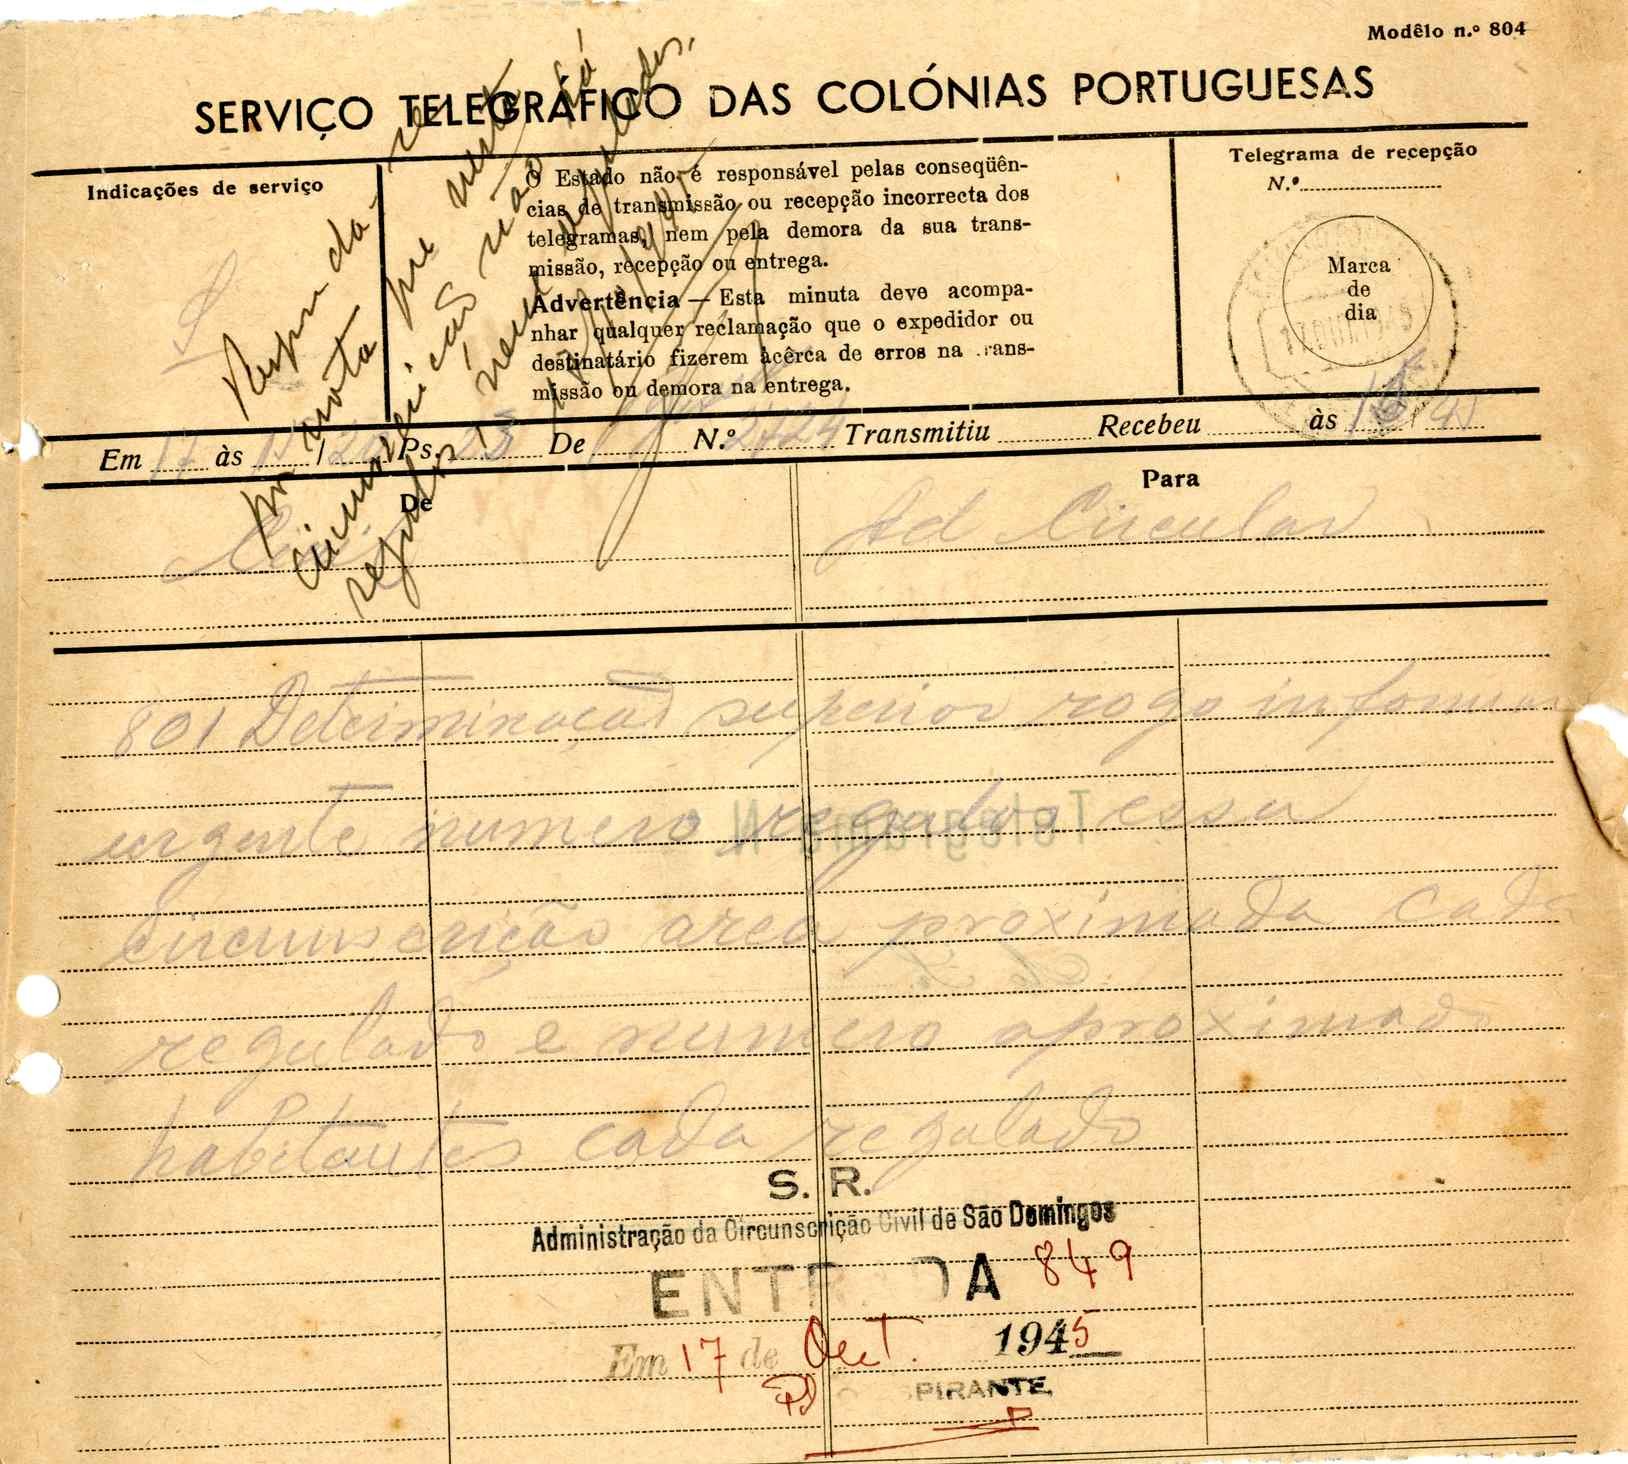 Modêlo n.º 804
SERVIÇO TELEGRÁFICO DAS COLÓNIAS PORTUGUESAS
Indicações de serviço
O Estado não é responsável pelas conseqüên-
cias de transmissão ou recepção incorrecta dos
telegramas, nem pela demora da sua trans-
missão, recepção ou entrega.
Advertência — Esta minuta deve acompa-
nhar qualquer reclamação que o expedidor ou
destinatário fizerem àcêrca de erros na trans-
missão ou demora na entrega.
Telegrama de recepção
N.º
Marca
de
dia
nota que nesta
não há
regulados, nem regulados.
Em 17 às Ps. 23 De N.º 2724 Transmitiu Recebeu às
De
Para
Ad Circular
801 Determinação superior rogo informar
urgente numero regulados essa
circunscrição area proximada cada
regulado e numero aproximado
habitantes cada regulado
S. R.
Administração da Circunscrição Civil de São Domingos
ENTRADA 849
Em 17 de Out. 1945
PIRANTE,